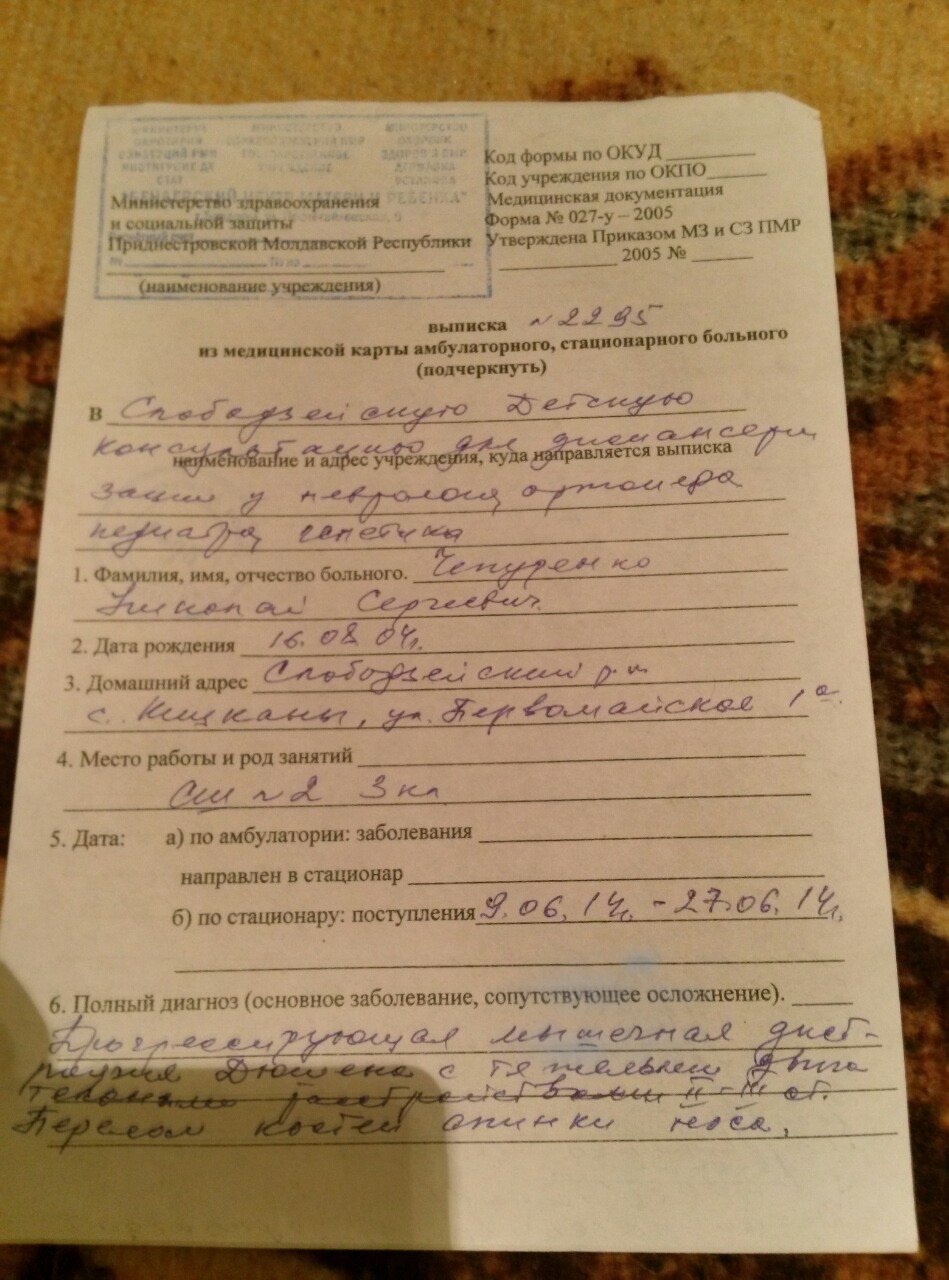 Министерство здравоохранения
и социальной защиты
Приднестровской Молдавской Республики
(наименование учреждения)
Код формы по ОКУД
Код учреждения по ОКПО
Медицинская документация
Форма № 027-у – 2005
Утверждена Приказом МЗ и СЗ ПМР
2005 №
выписка №2295
из медицинской карты амбулаторного, стационарного больного
(подчеркнуть)
В Слободзейскую Детскую
консультацию для диспансери
наименование и адрес учреждения, куда направляется выписка
зации у невролога ортопеда
педиатра, генетика
1. Фамилия, имя, отчество больного. Чепуренко
Николай Сергеевич
2. Дата рождения 16.08.04г.
3. Домашний адрес Слободзейский р-н
с. Кицканы, ул. Первомайское 1а
4. Место работы и род занятий
СШ №2 3 кл
5. Дата: а) по амбулатории: заболевания
направлен в стационар
б) по стационару: поступления 9.06.14г. - 27.06.14г.
6. Полный диагноз (основное заболевание, сопутствующее осложнение).
Прогрессирующая мышечная дист-
рофия Дюшена с тяжелыми двига
тельными расстройствами II-III ст.
Перелом костей спинки носа.